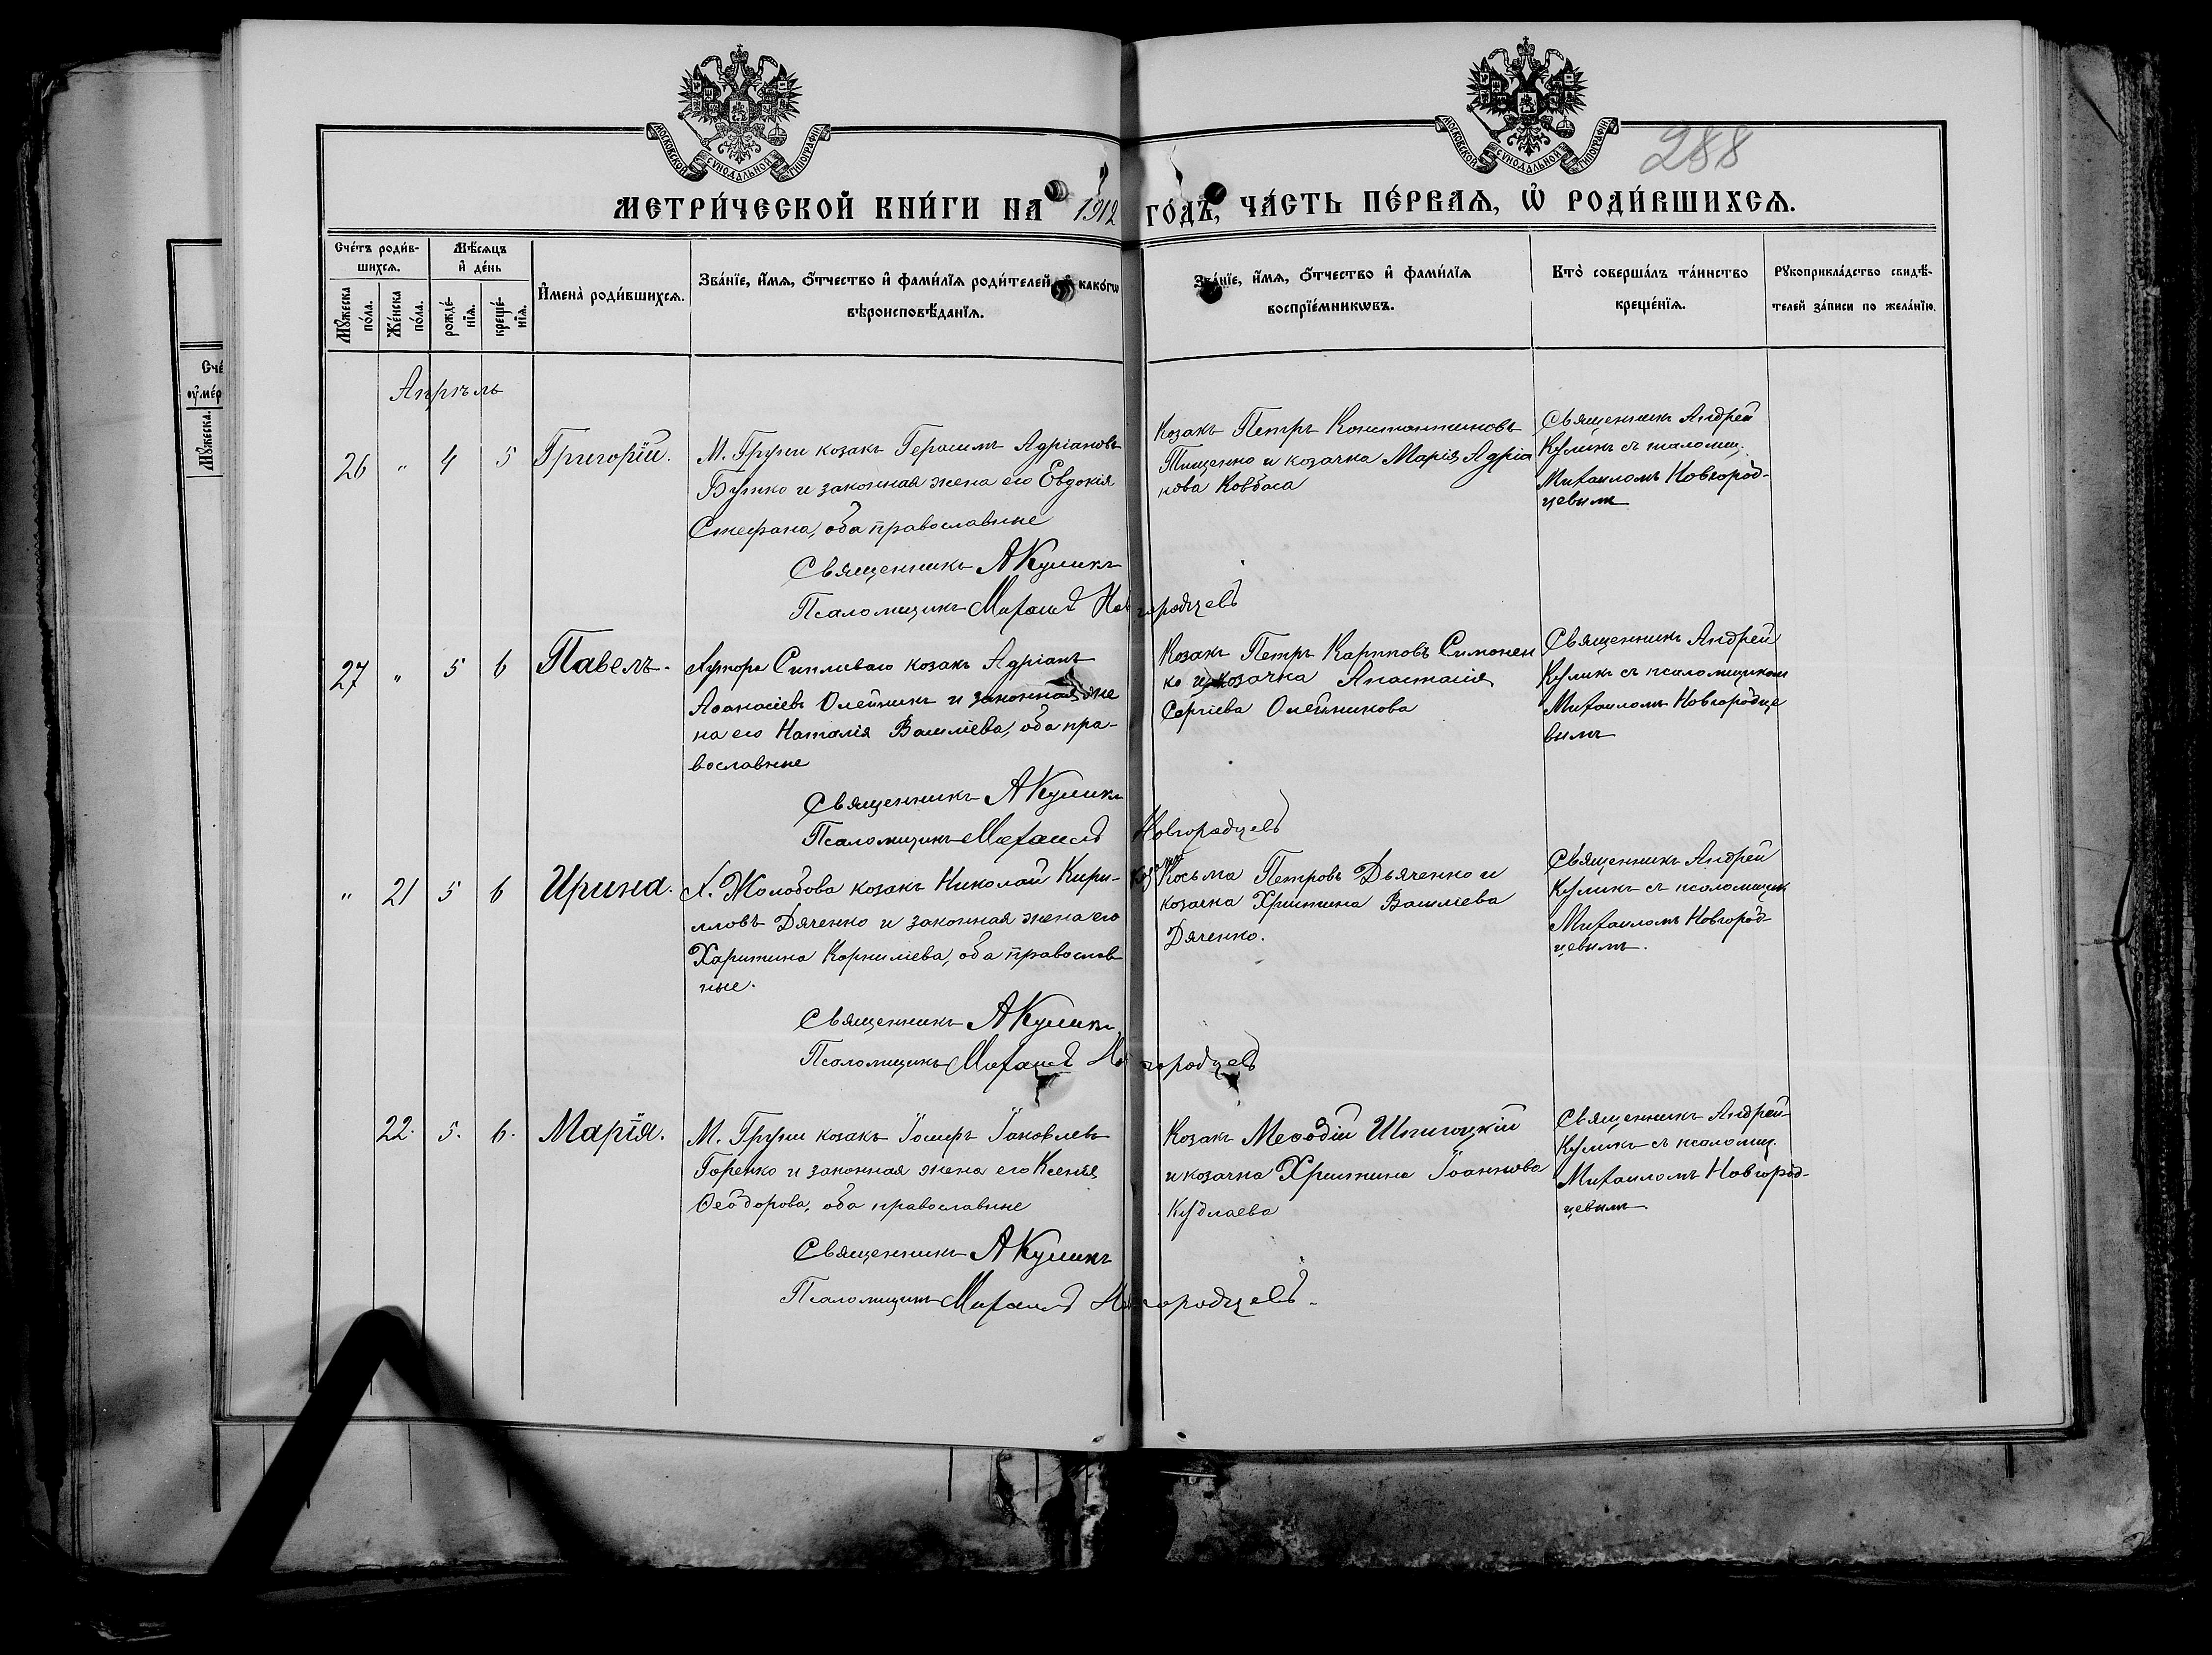 МОСКОВСКОЙ СѴНОДАЛЬНОЙ ТИПОГРАФІИ
МОСКОВСКОЙ СѴНОДАЛЬНОЙ ТИПОГРАФІИ
288
МЕТРИ́ЧЕСКОЙ КНИ́ГИ НА 1912 ГО́ДЪ, ЧА́СТЬ ПЕ́РВАѦ, Ѡ҆ РОДИ́ВШИХСѦ.
Сче́тъ роди́в-
шихсѧ.
Мꙋ́жеска по́ла.
Же́нска по́ла.
Мѣ́сѧцъ
и҆ де́нь
рожде́-
нїѧ.
креще́-
нїѧ.
И҆мена̀ роди́вшихсѧ.
Зва́нїе, и҆́мѧ, ѻ҆́тчество и҆ фами́лїѧ роди́телей, и҆ како́гѡ
вѣроисповѣ́данїѧ.
Зва́нїе, и҆́мѧ, ѻ҆́тчество и҆ фами́лїѧ
воспрїе́мникѡвъ.
Кто̀ соверша́лъ та́инство
креще́нїѧ.
Рꙋкоприкла́дство свидѣ́-
телей за́писи по жела́нїю.
Апрѣль
26 " 4 5 Григорій.
М. Груни козакъ Герасимъ Адріановъ
Бутко и законная жена его Евдокія
Стефана, оба православные
Священникъ АКуликъ
Псаломщикъ Михаилъ Новгородцевъ
Козакъ Петръ Константиновъ
Тищенко и козачка Марія Адріа
нова Ковбаса
Священникъ Андрей
Куликъ съ псаломщ.
Михаиломъ Новгород-
цевымъ
27 " 5 6 Павелъ.
Хутора Сипливаго козакъ Адріанъ
Аѳанасіевъ Олейникъ и законная же
на его Наталія Василіева, оба пра-
вославные
Священникъ АКуликъ
Псаломщикъ Михаилъ Новгородцевъ
Козакъ Петръ Карповъ Симонен
ко и козачка Анастасія
Сергіева Олейникова
Священникъ Андрей
Куликъ съ псаломщикомъ
Михаиломъ Новгородце
вымъ
" 21 5 6 Ирина.
Х. Жолобова козакъ Николай Кири-
лловъ Дяченко и законная жена его
Харитина Корниліева, оба православ
ные.
Священникъ АКуликъ
Псаломщикъ Михаилъ Новгородцевъ
Козакъ Косьма Петровъ Дьяченко и
козачка Христина Василіева
Дяченко.
Священникъ Андрей
Куликъ съ псаломщик
Михаиломъ Новгород-
цевымъ.
22. 5. 6. Марія.
М. Груни козакъ Іосифъ Іаковлевъ
Горенко и законная жена его Ксенія
Ѳеодорова, оба православные
Священникъ АКуликъ
Псаломщикъ Михаилъ Новгородцевъ.
Козакъ Меѳодій Шпигоцкій
и козачка Христина Іоаннова
Кудлаева
Священникъ Андрей
Куликъ съ псаломщ.
Михаиломъ Новгород-
цевымъ